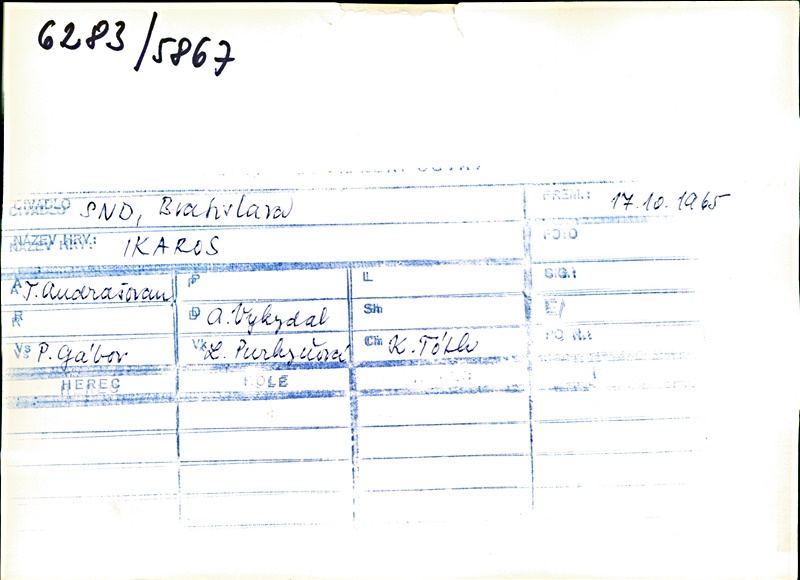 6283/5867
DIVADLO SND, Bratislava PREM.: 17.10.1965
NÁZEV HRY: IKAROS FOTO
A T. Andrašovan P L S.G.:
R D A. Vykydal Sh
Vs P. Gábor Vk L. Purkyňová Ch K. Tóth
HEREC ROLE